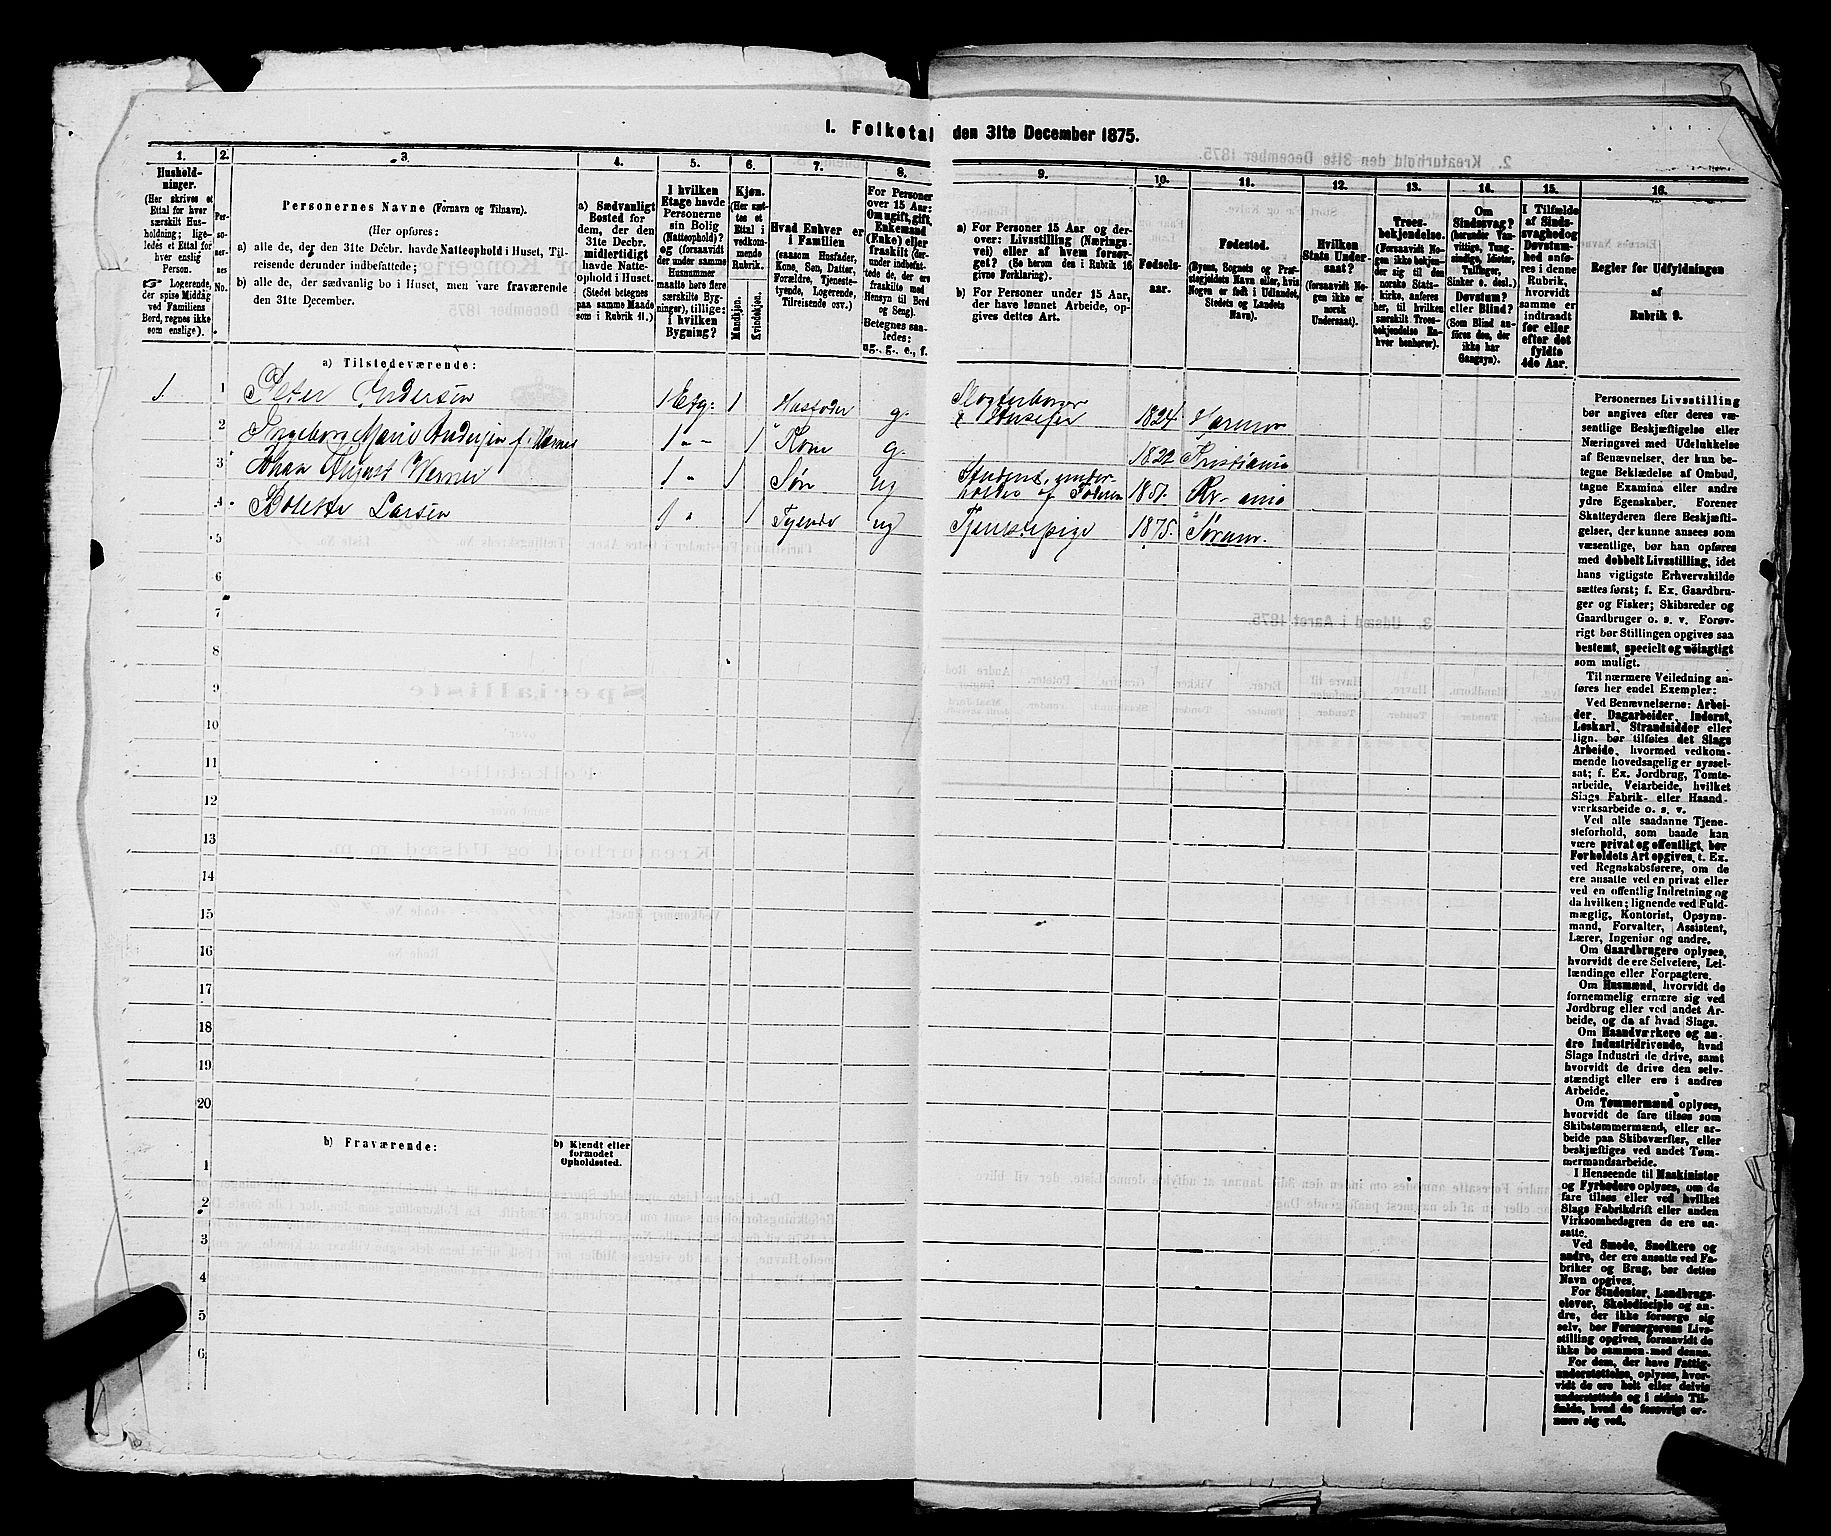 I. Folketal den 31te December 1875.
1.
Hushold-
ninger.
(Her skrives et
Ettal for hver
særskilt Hus-
holdning; lige-
ledes et Ettal for
hver enslig
Person.
Logerende,
der spise Middag
ved Familiens
Bord, regnes ikke
som enslige).
2.
Per-
so-
ner-
nes
No.
3.
Personernes Navne (Fornavn og Tilnavn).
(Her opføres:
a) alle de, der den 31te Decbr. havde Natteophold i Huset, Til-
reisende derunder indbefattede;
b) alle de, der sædvanlig bo i Huset, men vare fraværende
den 31te December.
4.
a) Sædvanligt
Bosted for
dem, der den
31te Decbr.
midlertidigt
havde Natte-
ophold i Huset.
(Stedet betegnes
paa samme Maade
som i Rubrik 11.)
5.
I hvilken
Etage havde
Personerne
sin Bolig
(Natteophold)?
og (forsaavidt
der under samme
Husnummer
maatte høre flere
særskilte Byg-
ninger), tillige:
i hvilken
Bygning?
6.
Kjøn.
(Her sæt-
tes et
Ettal i
vedkom-
mende
Rubrik.
Mandkjøn.
Kvindekjøn.
7.
Hvad Enhver er
i Familien
(saasom Husfader,
Kone, Søn, Datter,
Forældre, Tjeneste-
tyende, Logerende,
Tilreisende osv.)
8.
For Personer
over 15 Aar:
Om ugift, gift,
Enkemand
(Enke) eller
fraskilt (der-
under indbefat-
tede de, der ere
fraskilte med
Hensyn til Bord
og Seng).
Betegnes saa-
ledes:
ug., g., e., f.
9.
a) For Personer 15 Aar og der-
over: Livsstilling (Nærings-
vei) eller af hvem forsør-
get? (Se herom den i Rubrik 16
givne Forklaring).
b) For Personer under 15 Aar,
der have lønnet Arbeide, op-
gives dettes Art.
10.
Fødsels-
aar.
11.
Fødested.
(Byens, Sognets og Præ-
stegjeldets Navn eller, hvis
Nogen er født i Udlandet,
Stedets og Landets
Navn).
12.
Hvilken
Stats Under-
saat?
(forsaavidt No-
gen ikke er
norsk
Undersaat).
13.
Troes-
bekjendelse.
(Forsaavidt No-
gen ikke bekjen-
der sig til den
norske Stats-
kirke, anføres
her, til hvilken
særskilt Troes-
bekjendelse En-
hver henhører).
14.
Om
Sindssvag?
(herunder Van-
vittige, Tung-
sindige, Idioter,
Tullinger,
Sinker o. desl.)
Døvstum?
eller Blind?
(Som Blind an-
føres den, der
ikke har
Gangsyn).
15.
I Tilfælde
af Sinds-
svaghed og
Døvstum-
hed anfø-
res i denne
Rubrik,
hvorvidt
samme er
indtraadt
før eller
efter det
fyldte
4de Aar.
16.
Regler for Udfyldningen
af
Rubrik 9.
a) Tilstedeværende:
1. 1 Peter Andersen 1 Etg: 1 Husfader g. 1824 
2 Ingeborg Marie Andersen f. Werner 1 " - 1 Kone g. 1822 Kristiania
3 Johan August Werner 1 " 1 Søn ug Student, under-
holdes af Faderen 1851. Kr-ania
4 Larsen 1 " 1 Tyende ug Tjenestepige 1875. Sørum.
5
6
7
8
9
10
11
12
13
14
15
16
17
18
19
20
b) Fraværende:
b) Kjendt eller
formodet
Opholdssted.
1
2
3
4
5
6
Personernes Livsstilling
bør angives efter deres væ-
sentlige Beskjæftigelse eller
Næringsvei med Udelukkelse
af Benævnelser, der kun be-
tegne Beklædelse af Ombud,
tagne Examina eller andre
ydre Egenskaber. Forener
Skatteyderen flere Beskjæfti-
gelser, der kunne ansees som
væsentlige, bør han opføres
med dobbelt Livsstilling, idet
hans vigtigste Erhvervskilde
sættes først; f. Ex. Gaardbru-
ger og Fisker; Skibsreder og
Gaardbruger o. s. v. Forøv-
rigt bør Stillingen opgives saa
bestemt, specielt og nøiagtigt
som muligt.
Til nærmere Veiledning an-
føres her endel Exempler:
Ved Benævnelserne: Arbei-
der, Dagarbeider, Inderst,
Løskarl, Strandsidder eller
lign. bør tilføies det Slags
Arbeide, hvormed vedkom-
mende hovedsagelig er syssel-
sat; f. Ex. Jordbrug, Tomte-
arbeide, Veiarbeide, hvilket
Slags Fabrik- eller Haand-
værksarbeide o. s. v.
Ved alle saadanne Tjene-
steforhold, som baade kan
være privat og offentligt, bør
Forholdets Art opgives, t. Ex.
ved Regnskabsførere, om de
ere ansatte ved en privat eller
ved en offentlig Indretning og
da hvilken; lignende ved Fuld-
mægtig, Kontorist, Opsyns-
mand, Forvalter, Assistent,
Lærer, Ingeniør og andre.
Om Gaardbrugere oplyses,
hvorvidt de ere Selveiere, Lei-
lændinge eller Forpagtere.
Om Husmænd, hvorvidt de
fornemmelig ernære sig ved
Jordbrug eller ved andet Ar-
beide, og da af hvad Slags.
Om Haandværkere og an-
dre Industridrivende, hvad
Slags Industri de drive, samt
hvorvidt de drive den selv-
stændigt eller ere i andres
Arbeide.
Om Tømmermænd oplyses,
hvorvidt de fare tilsøs som
Skibstømmermænd, eller ar-
beide paa Skibsværfter, eller
beskjæftiges ved andet Tøm-
mermandsarbeide.
I Henseende til Maskinister
og Fyrbødere oplyses, om de
fare tilsøs eller ved hvilket
Slags Fabrikdrift eller anden
Virksomhedsgren de ere an-
satte.
Ved Smede, Snedkere og
andre, der ere ansatte ved Fa-
briker og Brug, bør dettes
Navn opgives.
For Studenter, Landbrugs-
elever, Skoledisciple og an-
dre, der ikke forsørge sig
selv, bør Forsørgerens Livs-
stilling opgives, forsaavidt de
ikke bo sammen med denne.
For dem, der have Fattig-
understøttelse, oplyses, hvor-
vidt de ere helt eller delvis
understøttede og i sidste Til-
fælde, hvad de forøvrigt er-
nære sig ved.